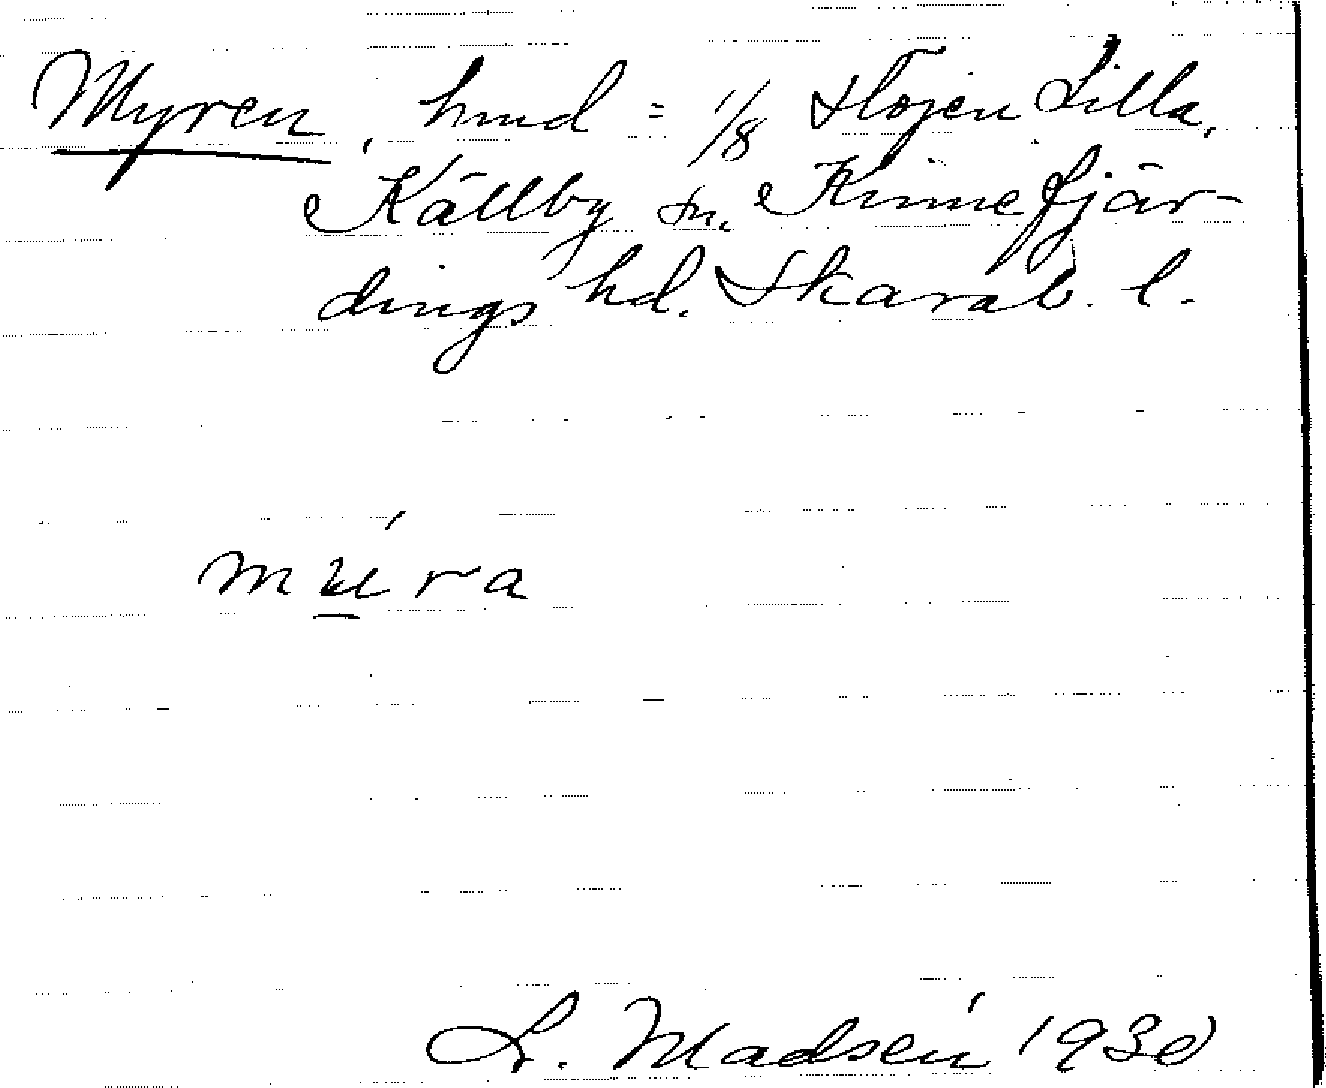 Myren, hmd = 1/8 Slöjen Lilla,
Källby sn. Kinnefjär-
dings hd. Skarab. l.
múra
L. Madsén 1930